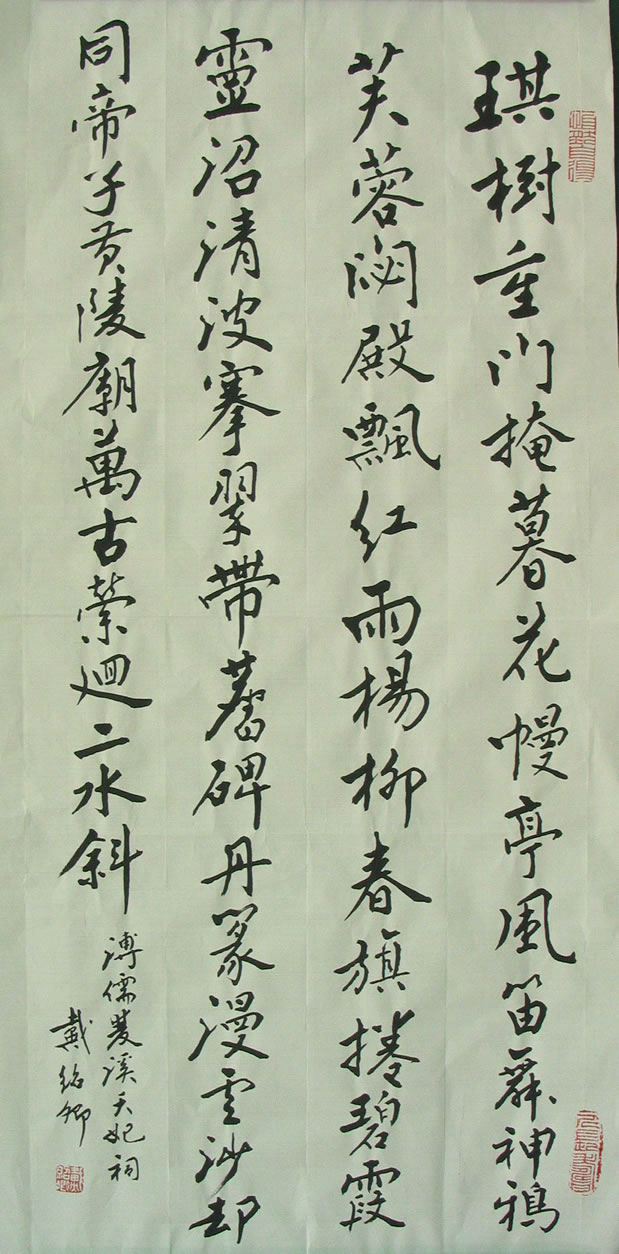 琪樹重門掩暮花幔亭風笛舞神鴉
芙蓉閟殿飄紅雨楊柳春旗捲碧霞
靈沼清波搴翠帶舊碑丹篆漫雲沙却
同帝子黄陵廟萬古縈迴二水斜
溥儒雙溪天妃祠
戴紹卿